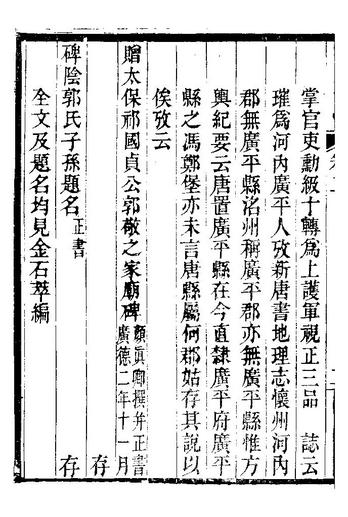 掌官吏勳級十轉爲上護軍視正三品　誌云
璀爲河內廣平人攷新唐書地理志懷州河內
郡無廣平縣洺州稱廣平郡亦無廣平縣惟方
輿紀要云唐置廣平縣在今直隸廣平府廣平
縣之馮鄭堡亦未言唐縣屬何郡姑存其說以
俟攷云
贈太保祁國貞公郭敬之家廟碑 顏眞卿撰幷正書 廣德二年十一月 存
碑陰郭氏子孫題名 正書 存
全文及題名均見金石萃編